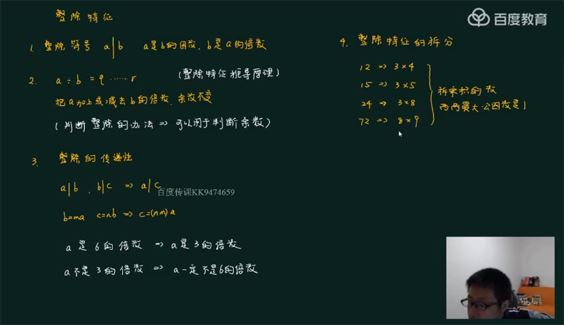 整除特征
1. 整除符号 a|b a是b的因数, b是a的倍数
2. a÷b=q……r (整除特征推导原理)
把a加上或减去b的倍数,余数不变
(判断整除的办法 ⇒ 可以用于判断余数)
3. 整除的传递性
a|b , b|c ⇒ a|c
百度传课KK9474659
b=ma c=nb ⇒ c=(nm)a
a是6的倍数 ⇒ a是3的倍数
a不是3的倍数 ⇒ a一定不是6的倍数
4. 整除特征的拆分
12 ⇒ 3×4
15 ⇒ 3×5
24 ⇒ 3×8
72 ⇒ 8×9
拆乘积的数
两两最大公因数是1
百度教育